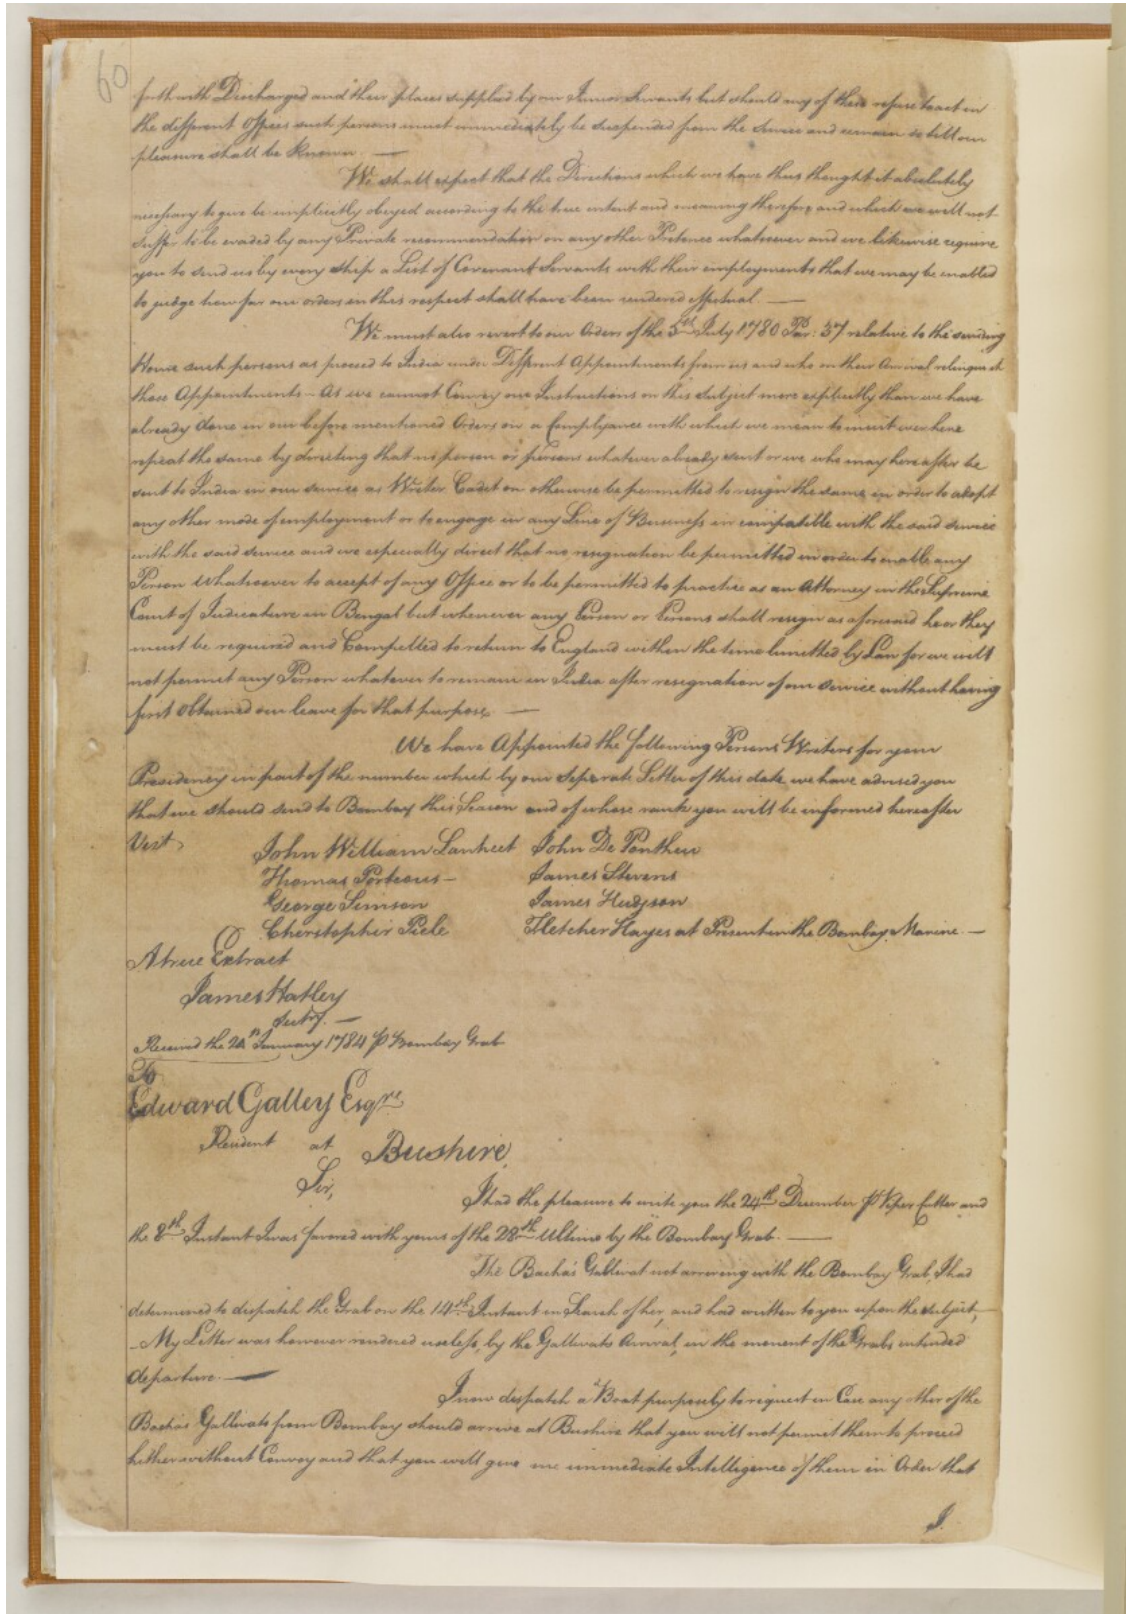 60
forthwith Discharged and their places supplied by our Junior Servants but should any of them refuse to act in
the different Offices such persons must immediately be suspended from the Service and remain so till our
pleasure shall be known. —
We shall expect that the Directions which we have thus thought it absolutely
necessary to give be implicitly obeyed according to the true intent and meaning thereof and which we will not
suffer to be evaded by any Private recommendation or any other Pretence whatsoever and we likewise require
you to send us by every ship a List of Covenant Servants with their employments that we may be enabled
to judge how far our orders in this respect shall have been rendered effectual. —
We must also revert to our Orders of the 5th July 1780 Par: 37 relative to the sending
Home such persons as proceed to India under Different Appointments from us and who on their Arrival relinquish
those Appointments – As we cannot Convey our Instructions on this Subject more explicitly than we have
already done in our before mentioned Orders on a Complyance with which we mean to insist we here
repeat the same by directing that no person or persons whatever already sent or who may hereafter be
sent to India in our service as Writer Cadet or otherwise be permitted to resign the same in order to adopt
any other mode of employment or to engage in any Line of Business in compatible with the said service
with the said service and we especially direct that no resignation be permitted in order to enable any
Person whatsoever to accept of any Office or to be permitted to practice as an Attorney in the Supreme
Court of Judicature in Bengal but whenever any Person or Persons shall resign as aforesaid he or they
must be required and Compelled to return to England within the time limitted by Law for we will
not permit any Person whatever to remain in India after resignation of our service without having
first obtained our leave for that purpose. —
We have Appointed the following Persons Writers for your
Presidency in part of the number which by our Seperate Letter of this date we have advised you
that we should send to Bombay this Season and of whose rank you will be informed hereafter
Vizt.
John William Lanheet John De Ponthieu
Thomas Porteous – James Stevens
George Simson James Hudgson
Christopher Peele Fletcher Hayes at Present in the Bombay Marine. —
A true Extract
James Hatley
Secrty. —
Received the January 1784 P Bombay Grab
To
Edward Galley Esqre
Resident at Bushire
Sir,
I had the pleasure to write you the 24th December P Viper Cutter and
the 8th Instant I was favored with yours of the 28th Ultimo by the Bombay Grab. —
The Bacha's Gallivat not arriving with the Bombay Grab, I had
determined to dispatch the Grab on the 14th Instant in Search of her, and had written to you upon the subject,
– My Letter was however rendered useless, by the Gallivats Arrival, in the moment of the Grabs intended
departure. —
I now despatch a Boat purposely to request in Case any other of the
Bacha's Gallivats from Bombay should arrive at Bushire that you will not permit them to proceed
hither without Convoy and that you will give me immediate Intelligence of them in Order that
I